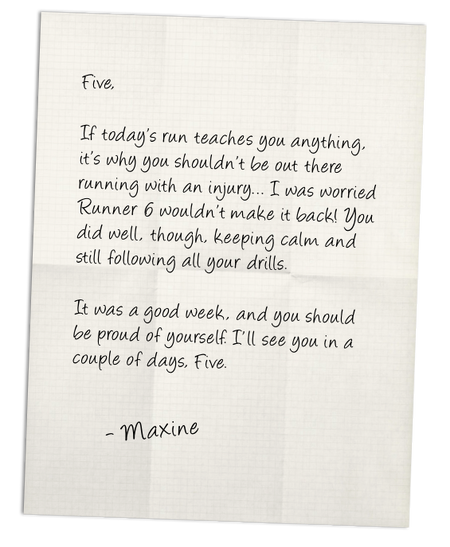 Five,
If today's run teaches you anything,
it's why you shouldn't be out there
running with an injury... I was worried
Runner 6 wouldn't make it back! You
did well, though, keeping calm and
still following all your drills.
It was a good week, and you should
be proud of yourself. I'll see you in a
couple of days, Five.
- Maxine